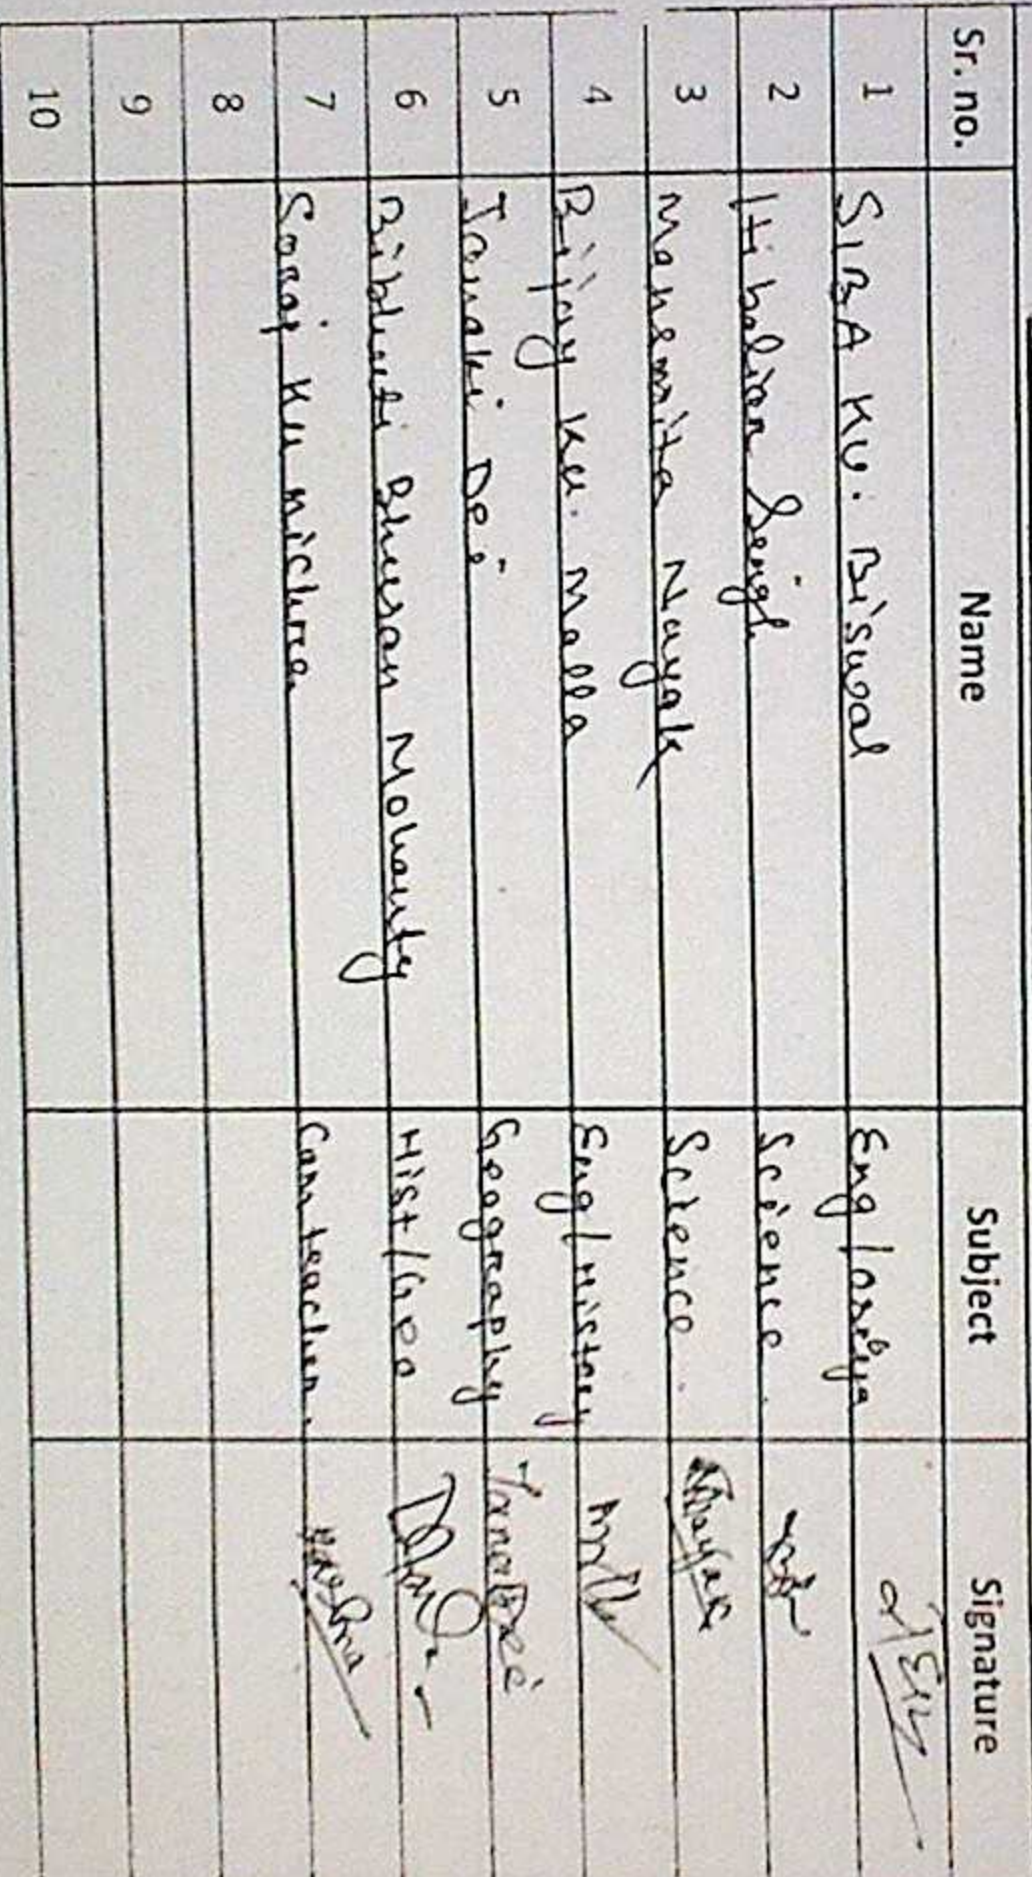 Sr. no. Name Subject Signature
1 SIBA KU. Biswal Eng/Oriya
2 Singh Science.
3 Manasmita Nayak Science. Nayak
4 Bijay Ku. Malla Eng/History
5 Janaki Dei Geography
6 Bibhuti Bhusan Mohanty Hist/Geo
7 Saroj Ku Mishra teacher.
8
9
10